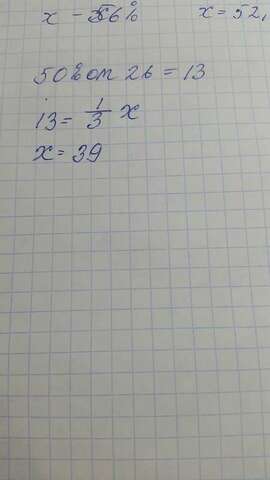 x - 56% x = 52,
50% от 26 = 13
13 = 1/3 x
x = 39